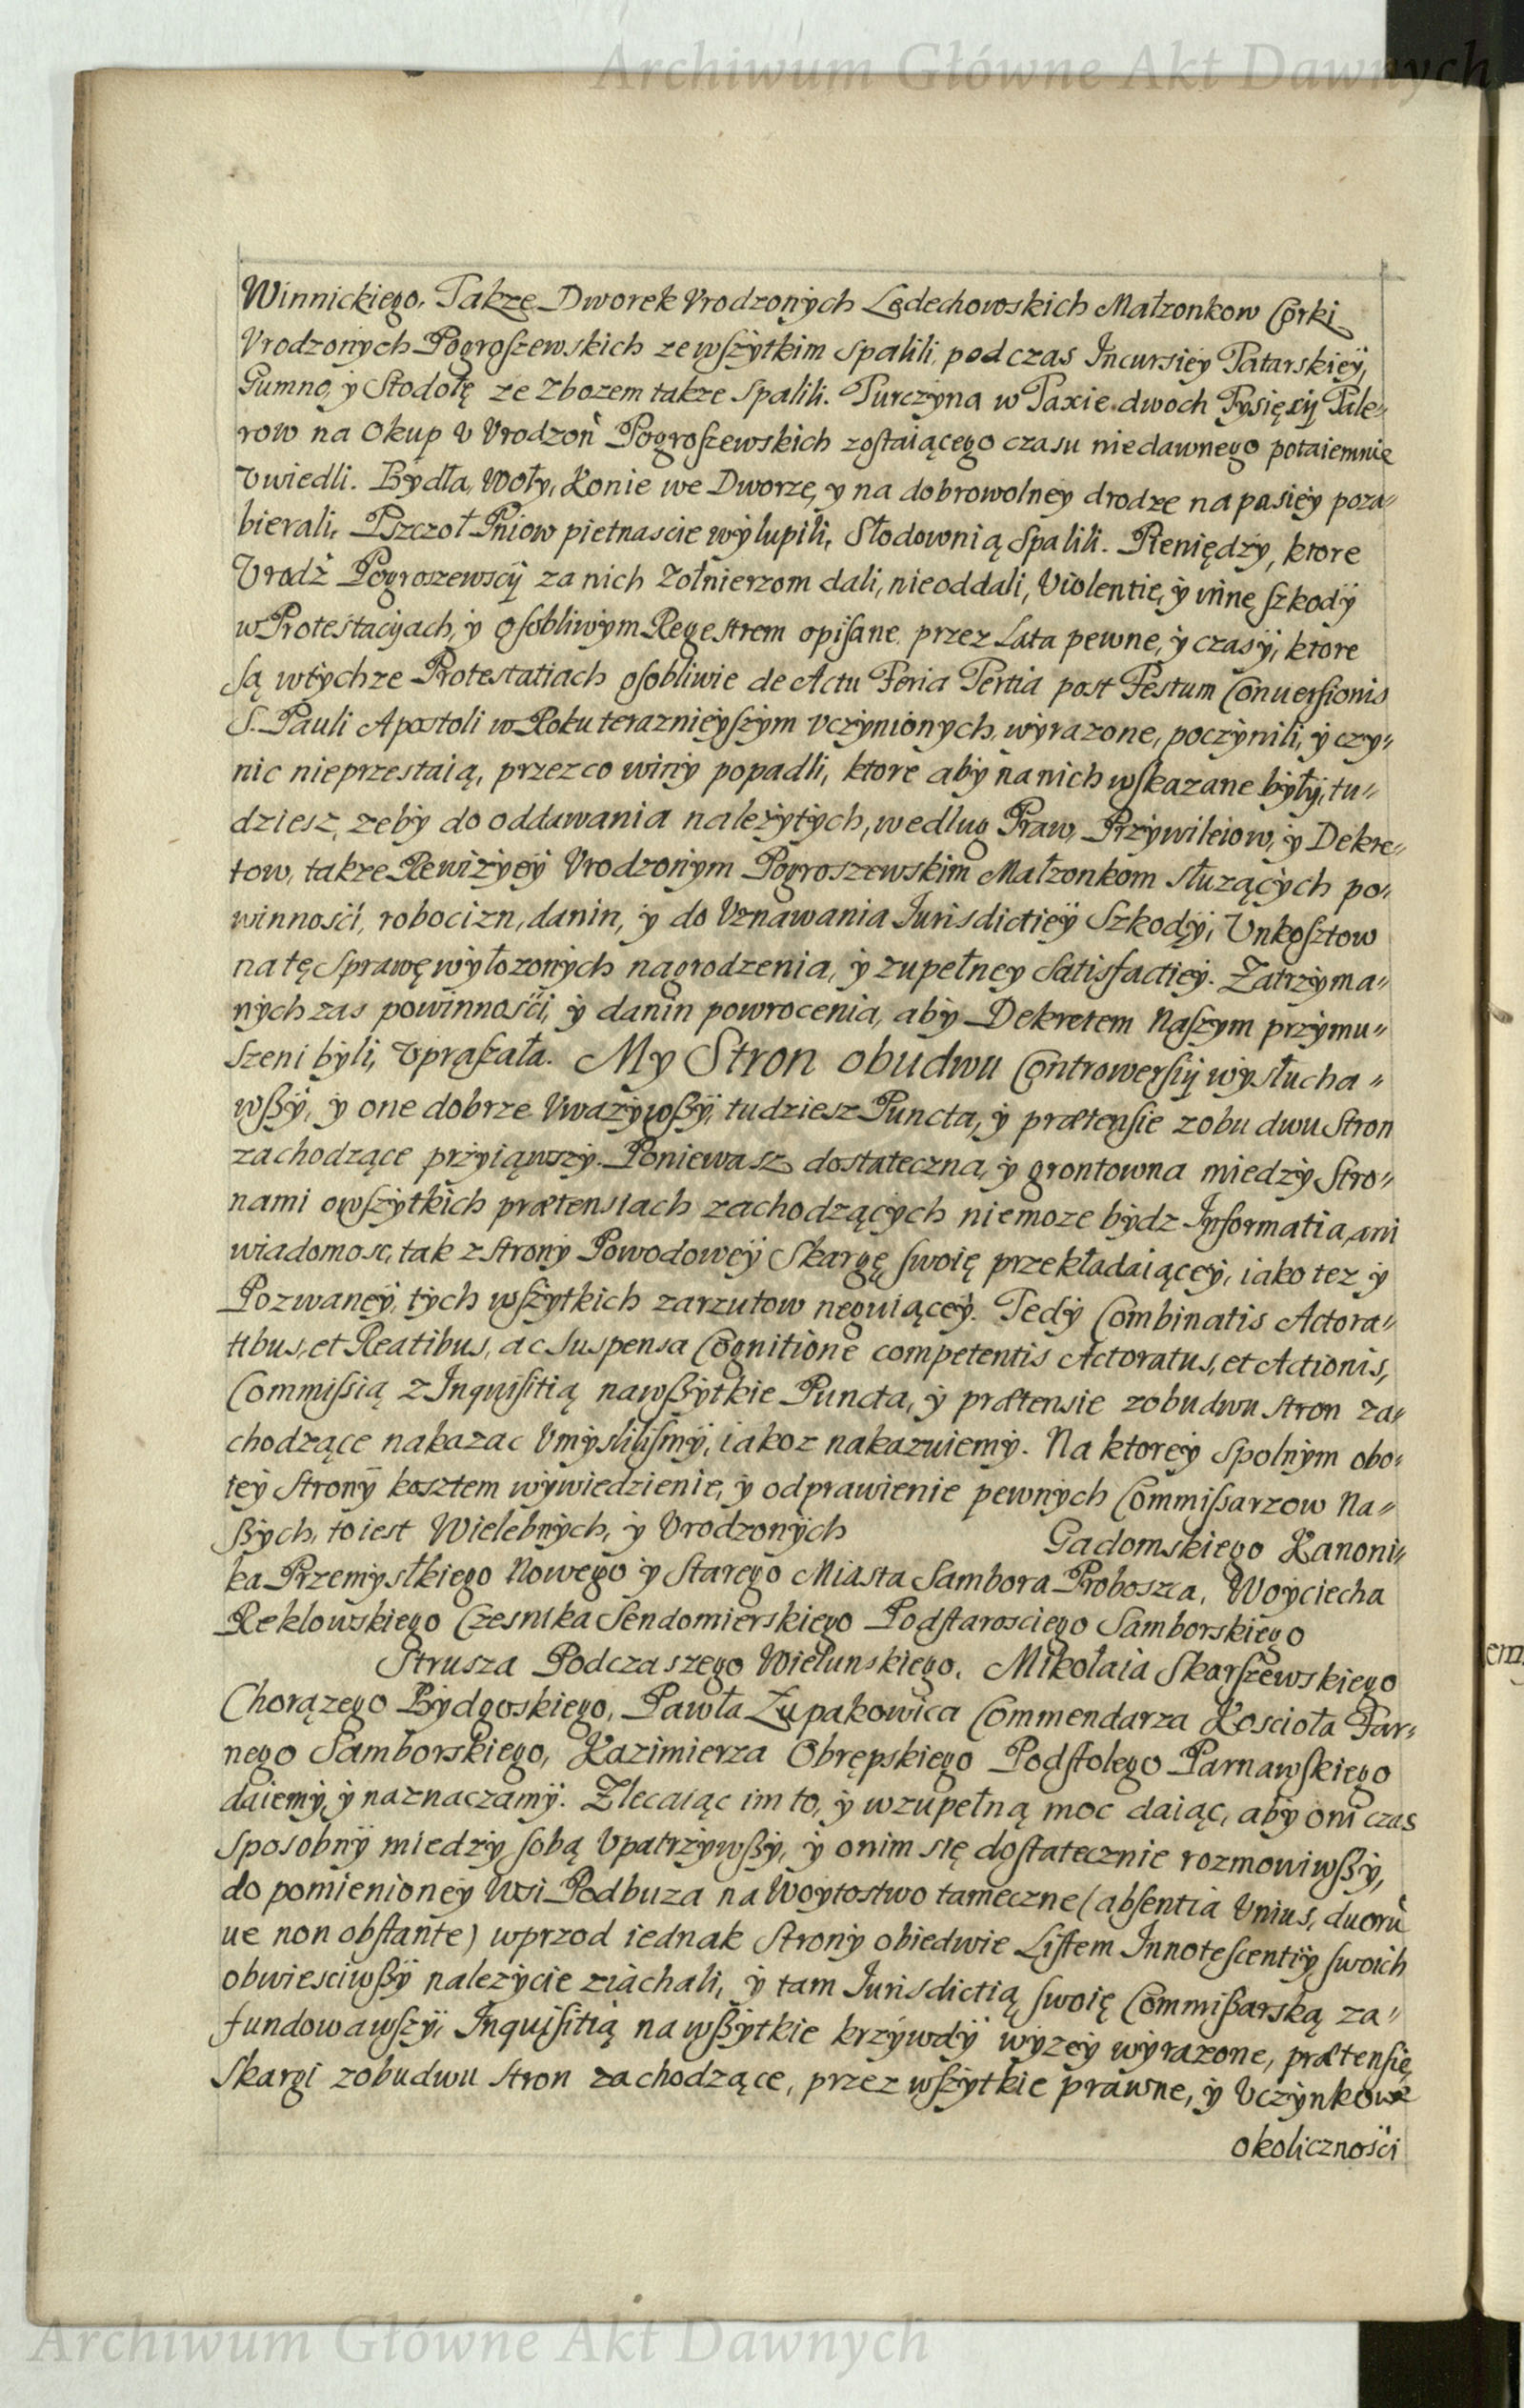 Archiwum Główne Akt Dawnych
Winnickiego. Takze Dworek Vrodzonych Lędechowskich Małzonkow Corki
Vrodzonych Pogroszewskich ze wszytkim spalili, pod czas Incursiey Tatarskiey,
Gumno, y Stodołę ze Zbozem takze spalili. Turczyna w Taxie dwoch Tysięcy Tale„
row na Okup V Vrodzon Pogroszewskich zostaiącego czasu niedawnego potaiemnie
Vwiedli. Bydła, Woły, Konie we Dworze, y na dobrowolney drodze na pasiey poza„
bierali, Pszczoł Pniow pietnascie wylupili, Słodownią spalili. Pieniędzy, ktore
Vrodz Pogroszewscy za nich Zołnierzom dali, nieoddali, Violentie, y inne szkody
w Protestacyach, y osobliwym Regestrem opisane przez Lata pewne, y czasy, ktore
są wtychze Protestatiach osobliwie de Actu Feria Tertia post Festum Conuersionis
S. Pauli Apostoli w Roku teraznieyszym vczynionych, wyrazone, poczynili, y czy„
nic nieprzestaią, przezco winy popadli, ktore aby nanich wskazane były, tu„
dziesz, zeby do oddawania należytych, wedlug Praw, Przywileiow, y Dekre„
tow, takze Rewizyey Vrodzonym Pogroszewskim Małzonkom słuzących po„
winnosci, robocizn, danin, y do Vznawania Iurisdictiey Szkody, Vnkosztow
na tę sprawę wyłozonych nagrodzenia, y zupełney satisfactiey. Zatrzyma„
nych zas powinnosci, y danin powrocenia, aby Dekretem Naszym przymu„
szeni byli, Vpraszała. My Stron obudwu Controwersiy wysłucha„
wszy, y one dobrze Vwazywszy, tudziesz Puncta, y prætensie zobu dwu Stron
zachodzące przyiąwszy. Poniewasz dostateczna, y grontowna miedzy Stro„
nami owszytkich prætensiach zachodzących niemoze bydz Informatia, ani
wiadomosc, tak z strony Powodowey Skargę swoię przekładaiącey, iako tez y
Pozwaney, tych wszytkich zarzutow neguiącey. Tedy Combinatis Actora„
tibus, et Reatibus, ac suspensa Cognitione competentis Actoratus, et Actionis,
Commissią z Inquisitią nawszytkie Puncta, y prætensie zobudwu stron za„
chodzące nakazac Vmyslilismy, iakoz nakazuiemy. Na ktorey spolnym obo„
iey strony kosztem wywiedzienie, y odprawienie pewnych Commissarzow Na„
szych, to iest Wielebnych, y Vrodzonych Gadomskiego Kanoni„
ka Przemyslkiego Nowego y Starego Miasta Sambora Proboszca, Woyciecha
Reklowskiego Czesnika Sendomierskiego Podstarosciego Samborskiego
Strusza Podczaszego Wielunskiego, Mikołaia Skarszewskiego
Chorązego Bydgoskiego, Pawła Zupakowica Commendarza Koscioła Far„
nego Samborskiego, Kazimierza Obrępskiego Podstolego Parnawskiego
daiemy, y naznaczamy. Zlecaiąc im to, y wzupełną moc daiąc, aby oni czas
sposobny miedzy sobą Vpatrzywszy, y onim się dostatecznie rozmowiwszy,
do pomienioney Wsi Podbuza na Woytostwo tameczne (absentia Vnius, duorũ
ue non obstante) wprzod iednak Strony obiedwie Listem Innotescentiy swoich
obwiesciwszy nalezycie ziachali, y tam Iurisdictią swoię Commissarską za„
fundowawszy, Inquisitią na wszytkie krzywdy wyzey wyrazone, prætensie,
Skargi zobudwu stron zachodzące, przez wszytkie prawne, y Vczynkowe
okolicznosci
Archiwum Główne Akt Dawnych